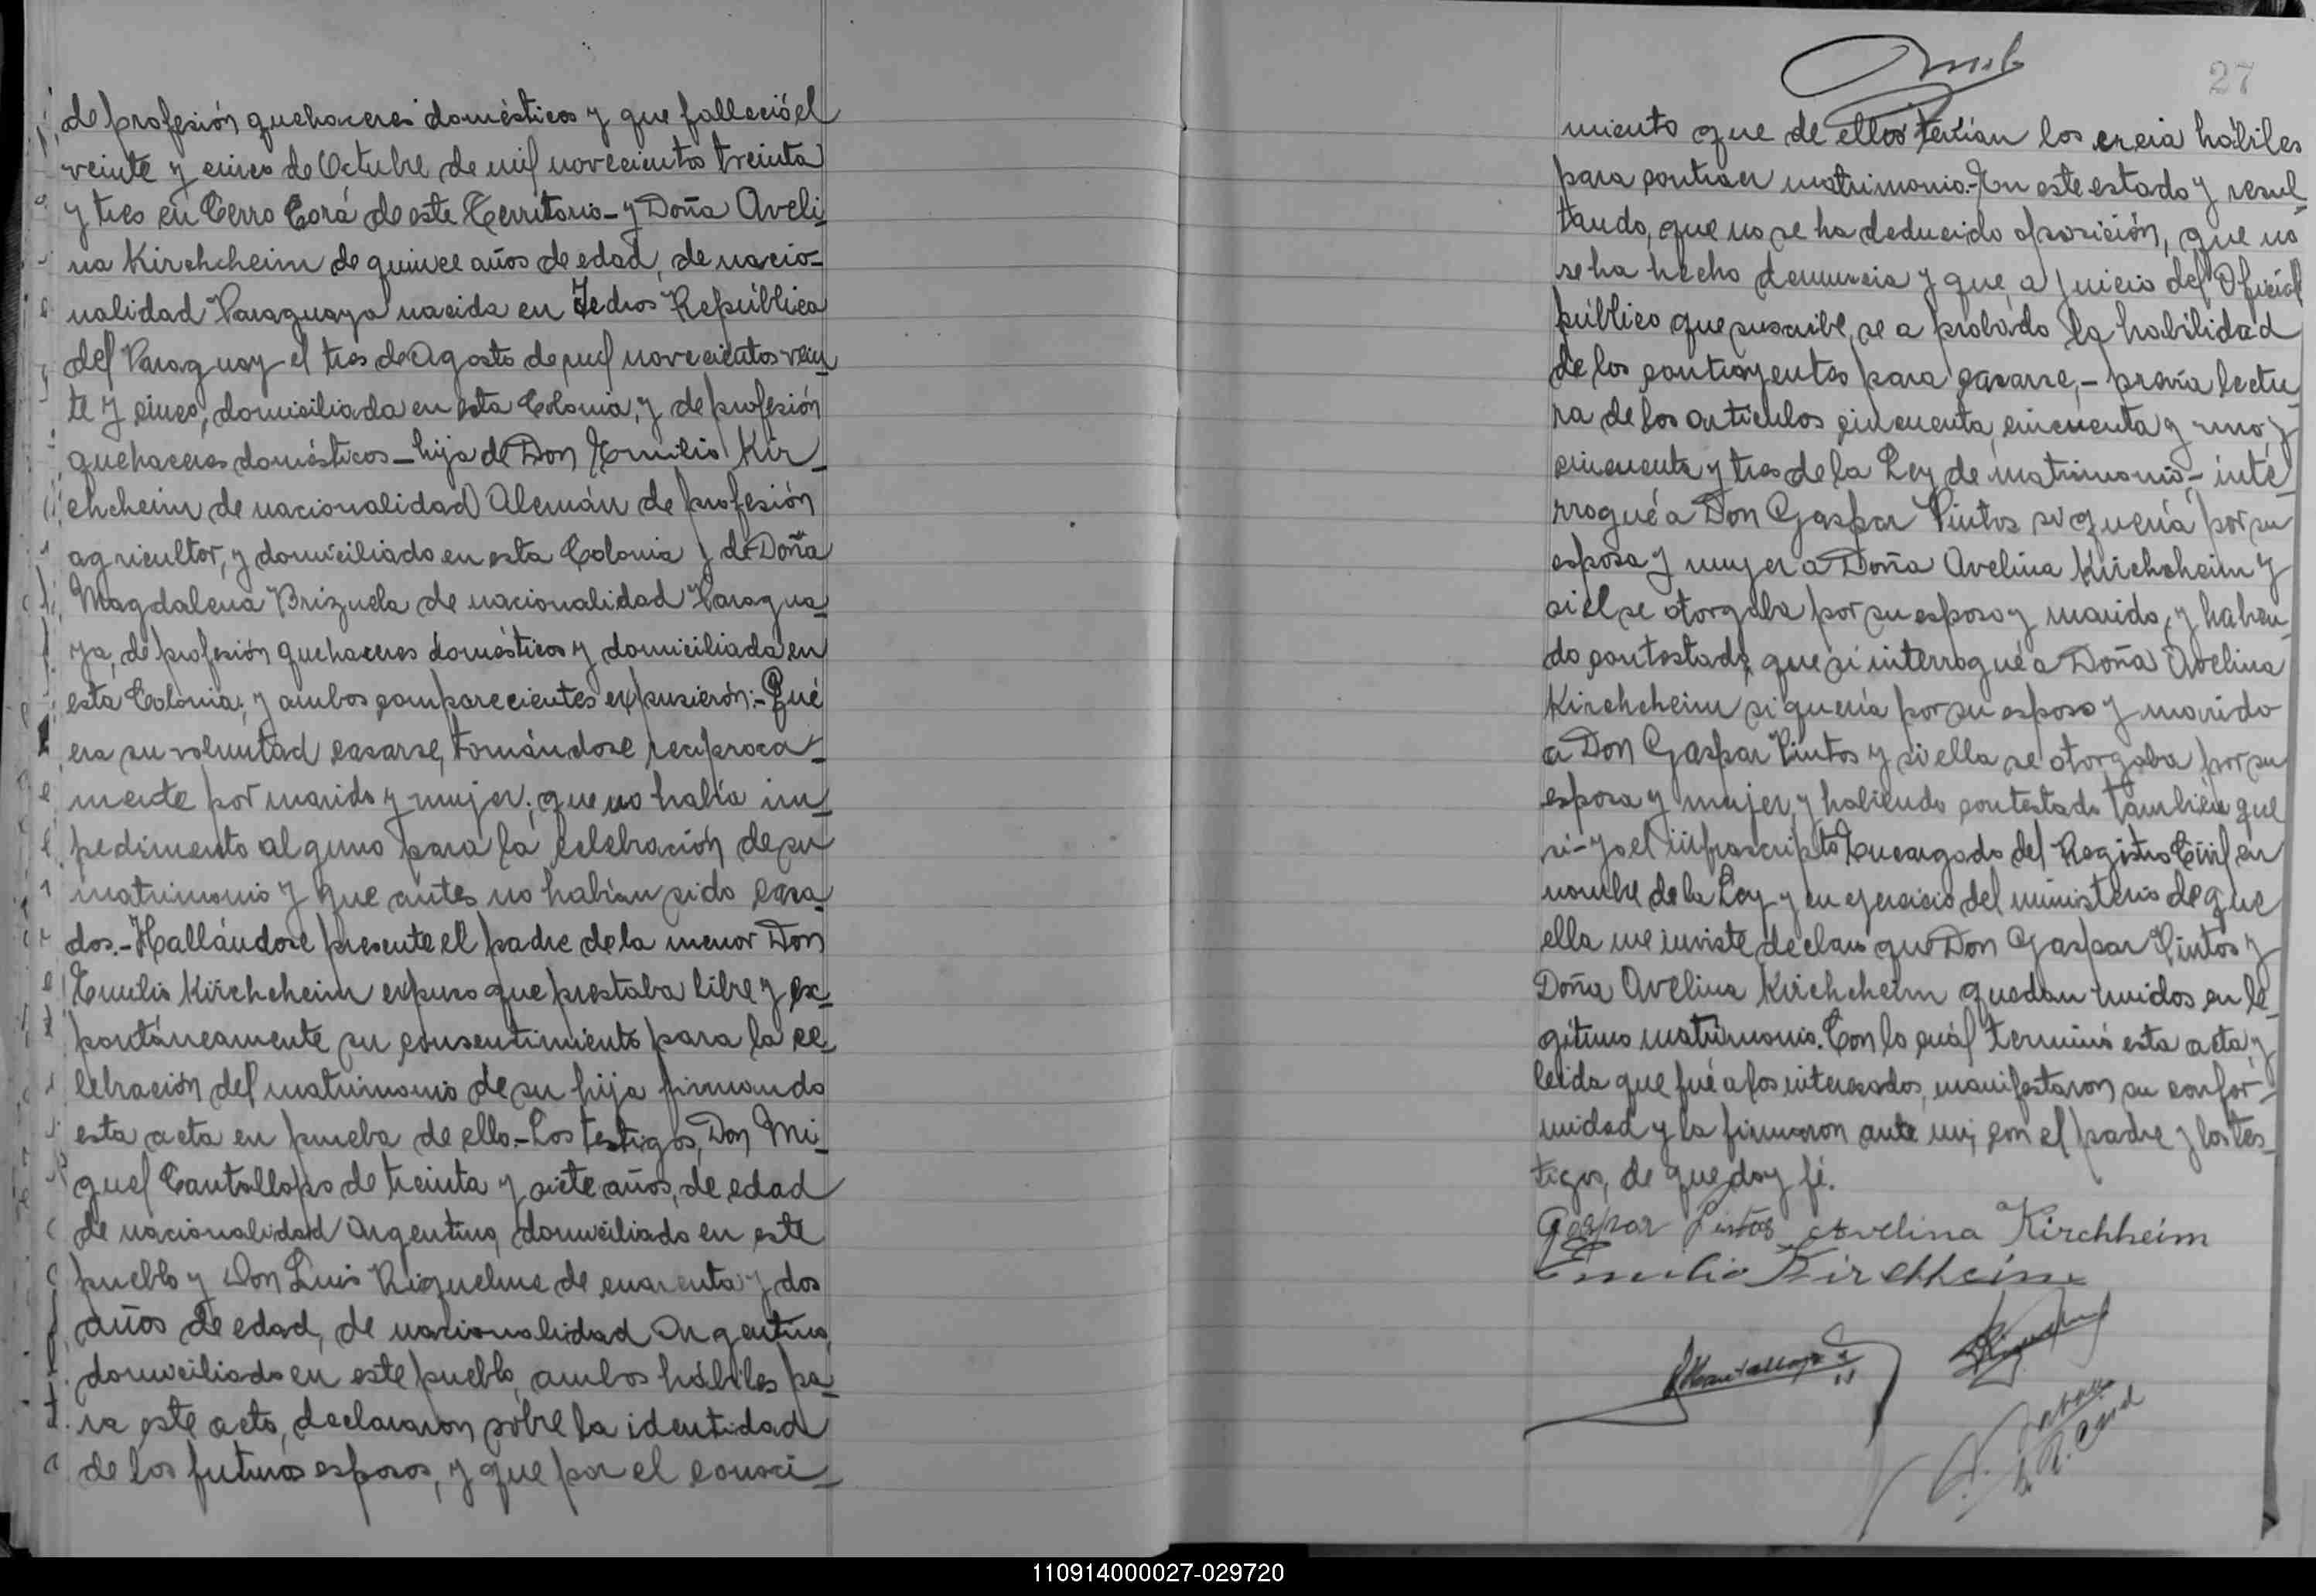 de profesión quehaceres domésticos y que falleció el
veinte y cinco de Octubre de mil novecientos treinta
y tres en Cerro Corá de este Territorio - y Doña Aveli-
na Kirchcheim de quince años de edad, de nacio-
nalidad Paraguaya nacida en Yedros República
del Paraguay el tres de Agosto de mil novecientos vein-
te y cinco, domiciliada en esta Colonia, y de profesión
quehaceres domésticos - hija de Don Emilio Kir-
chcheim de nacionalidad Alemán de profesión
agricultor, y domiciliado en esta Colonia y de Doña
Magdalena Brizuela de nacionalidad Paragua-
ya, de profesión quehaceres domésticos y domiciliada en
esta Colonia; y ambos comparecientes expusierón:- Qué
era su voluntad casarse, tomándose reciproca-
mente por marido y mujer; que no había im-
pedimento alguno para la celebración de su
matrimonio y que antes no habían sido casa-
dos.- Hallándose presente el padre de la menor Don
Emilio Kirchcheim expuso que prestaba libre y es-
pontáneamente su consentimiento para la ce-
lebración del matrimonio de su hija firmando
esta acta en prueba de ello.- Los testigos, Don Mi-
guel Cantallops de treinta y siete años, de edad
de nacionalidad Argentino, domiciliado en este
pueblo y Don Luis Riquelme de cuarenta y dos
años de edad, de nacionalidad Argentino,
domiciliado en este pueblo, ambos hábiles pa-
ra este acto, declararon sobre la identidad
de los futuros esposos, y que por el conoci-
27
miento que de ellos tenían los creia hábiles
para contraer matrimonio.- En este estado y resul-
tando, que no se ha deducido oposición, que no
se ha hecho denuncia y que, a juicio del Oficial
público que suscribe, se a probado la habilidad
de los contrayentes para casarse,- previa lectu-
ra de los articulos cincuenta, cincuenta y uno, y
cincuenta y tres de la Ley de matrimonio - inte-
rrogué a Don Gaspar Pintos si quería por su
esposa y mujer a Doña Avelina Kirchcheim y
si el se otorgaba por su esposo y marido, y habien-
do contestado que si interrogué a Doña Avelina
Kirchcheim si quería por su esposo y marido
a Don Gaspar Pintos y si ella se otorgaba por su
esposa y mujer, y habiendo contestado también que
si - yo el infrascripto Encargado del Registro Civil en
nombre de la Ley y en ejercicio del ministerio de que
ella me inviste declaro que Don Gaspar Pintos y
Doña Avelina Kirchcheim quedan unidos en le-
gitimo matrimonio. Con lo cuál terminó esta acta, y
leida que fué a los interesados, manifestaron su confor-
midad y la firmaron ante mi, con el padre y los tes-
tigos, de que doy fé.
Gaspar Pintos Avelina Kirchheim
Emilio Kirchheim
110914000027-029720